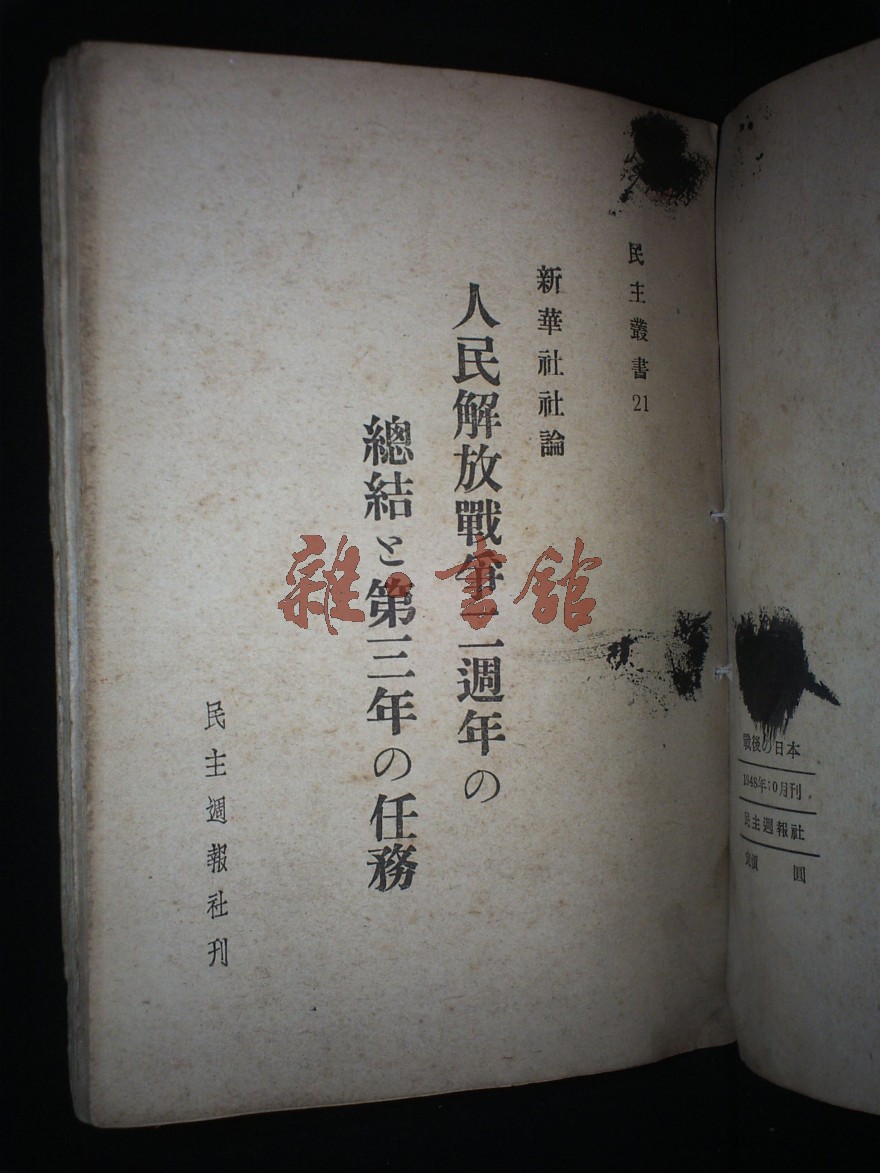 民主叢書21
新華社社論
人民解放戰争二週年の
總結と第三年の任務
民主週報社刊
戰後の日本
1948年10月刊
民主週報社
圓
雜·書館